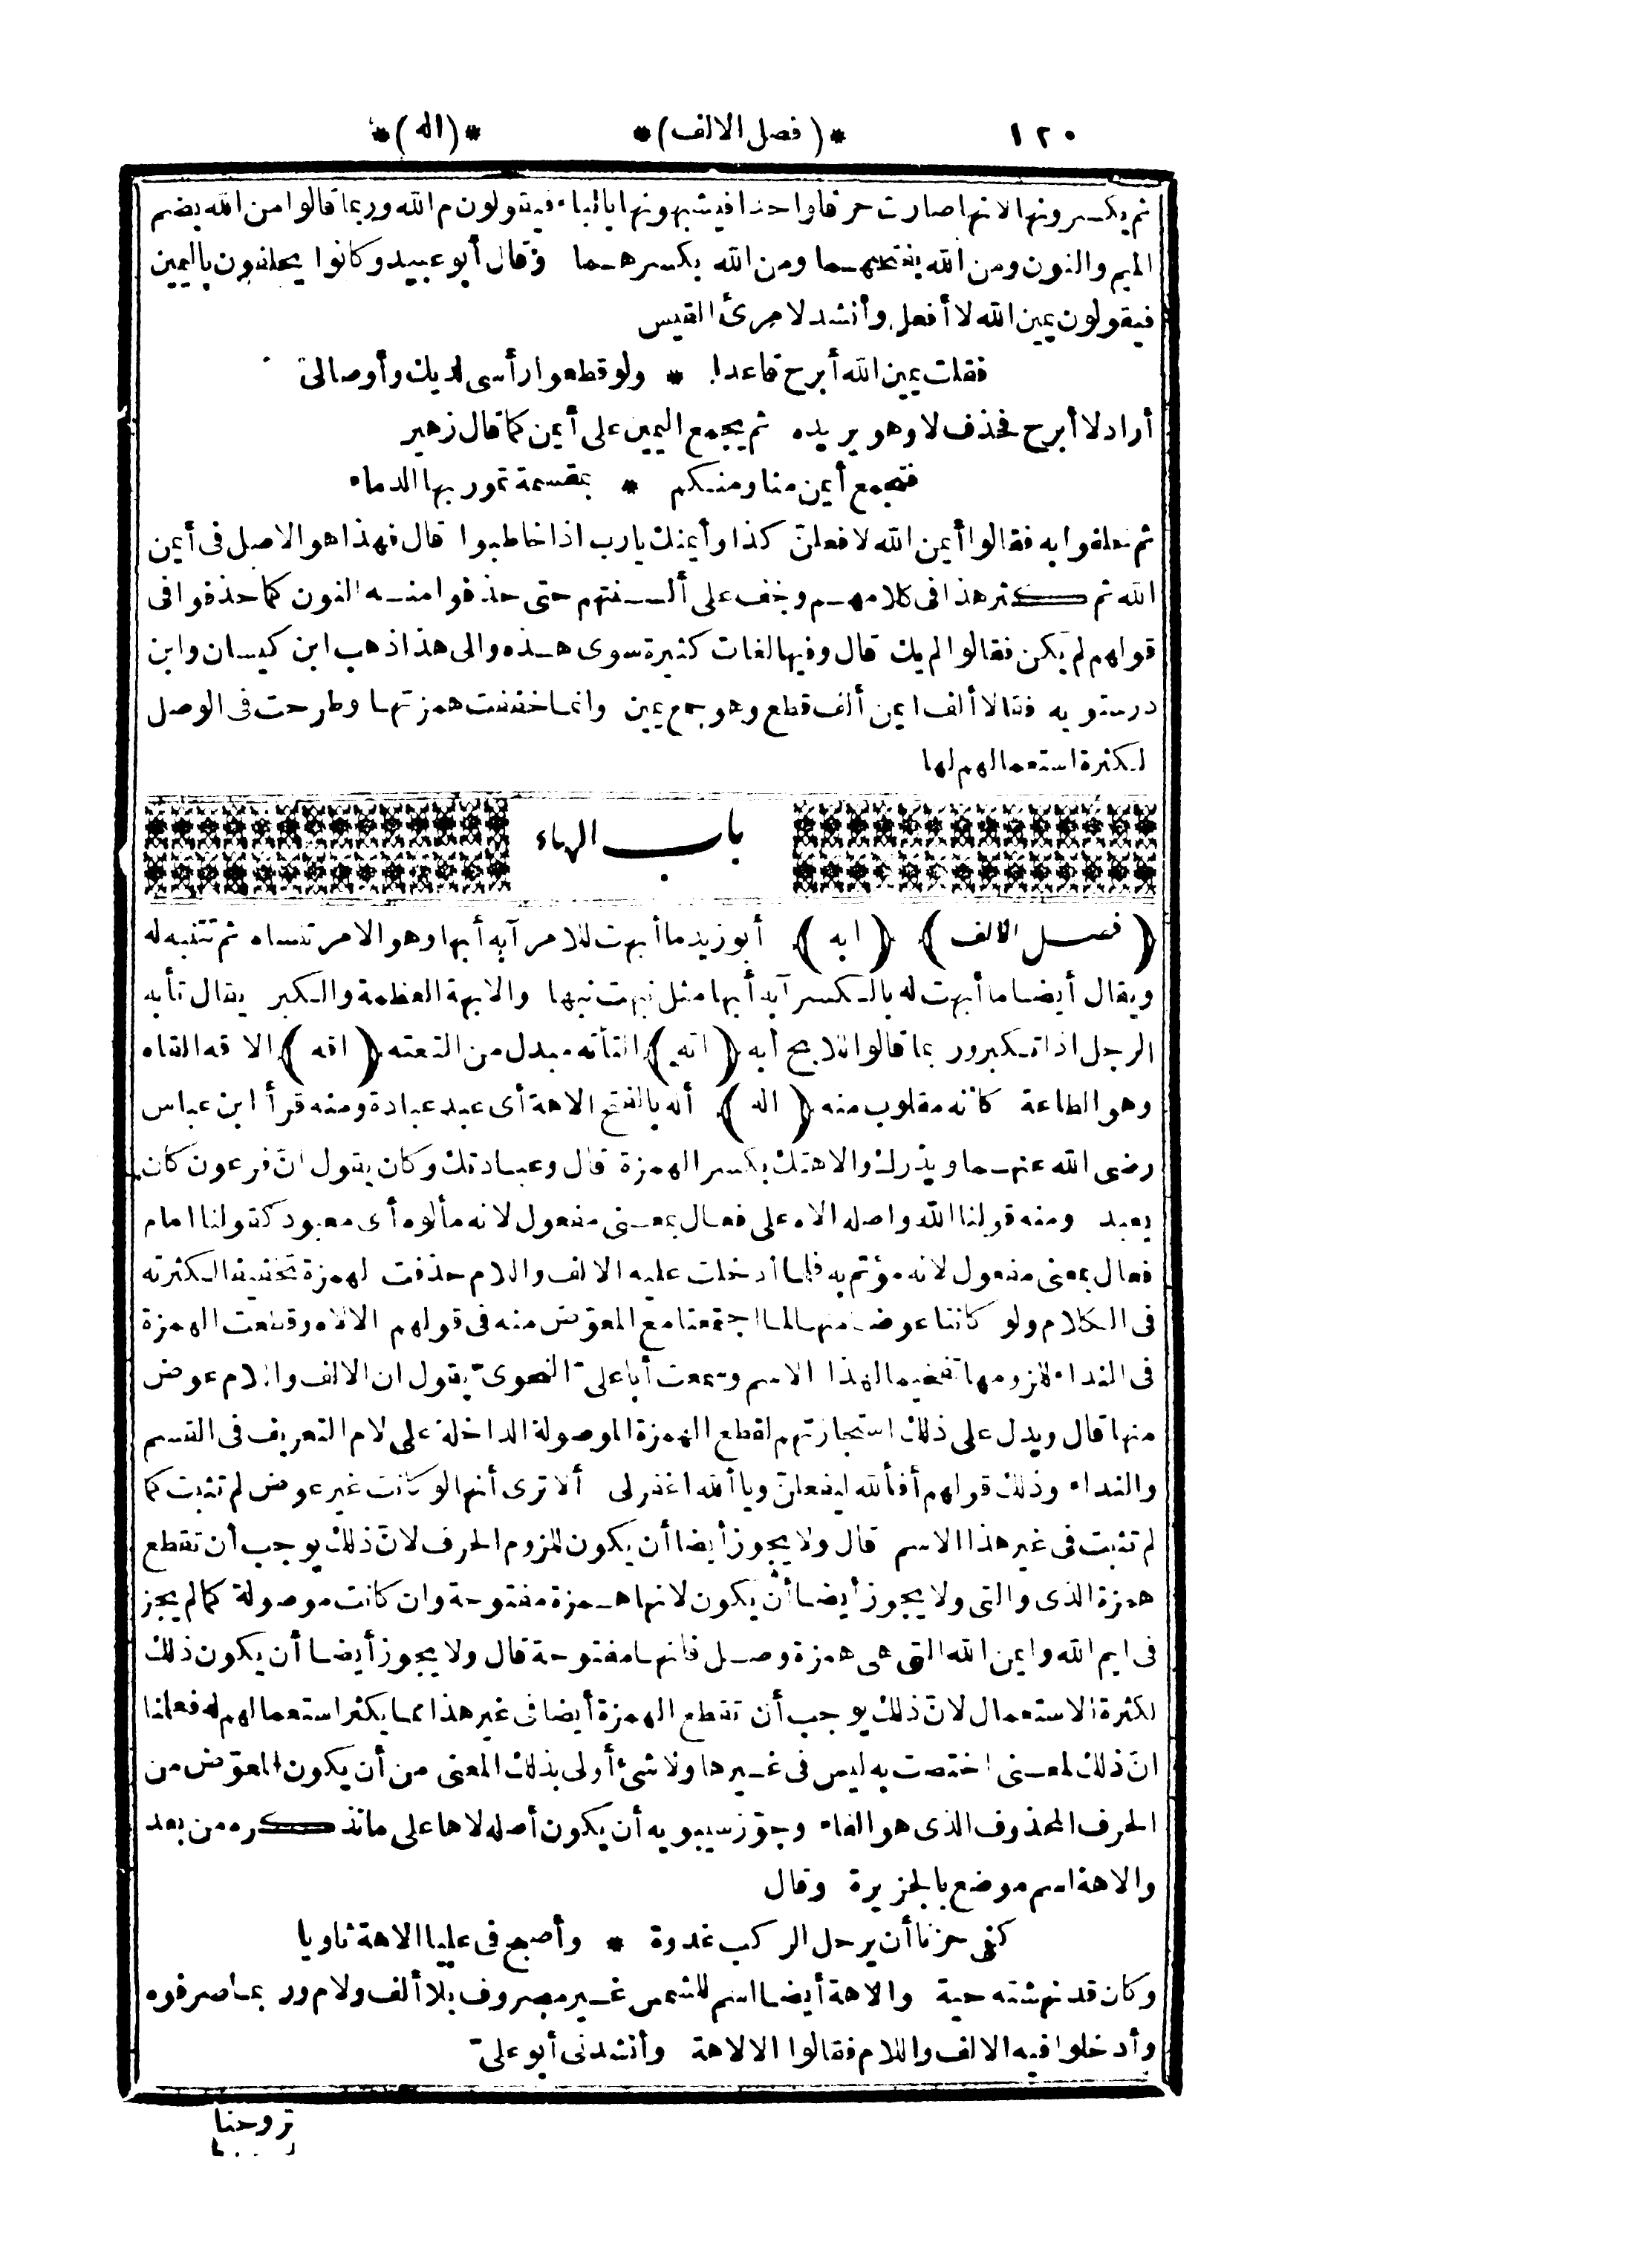 ١٢٠ *(فصل الالف)* *(اله)*
ثم يكسرونها لانها صارت حرفا واحدا فيشبهونها بالباء فيقولون م الله وربما قالوا من الله بضم
الميم والنون ومن الله بفتحهما ومن الله بكسرهما وقال أبو عبيد وكانوا يحلفون باليمين
فيقولون يمين الله لا أفعل وأنشد لامرئ القيس
فقلت يمين الله أبرح قاعدا * ولو قطعوا رأسى لديك وأوصالى
أراد لا أبرح فحذف لا وهو يريده ثم يجمع اليمين على أيمن كما قال زهير
فتجمع أيمن منا ومنكم * بمقسمة تمور بها الدماء
ثم حلفوا به فقالوا أيمن الله لافعلنّ كذا وأيمنك يارب اذا خاطبوا قال فهذا هو الاصل فى أيمن
الله ثم كثر هذا فى كلامهم وخف على ألسنتهم حتى حذفوا منه النون كما حذفوا فى
قولهم لم يكن فقالوا لم يك قال وفيها لغات كثيرة سوى هذه والى هذا ذهب ابن كيسان وابن
درستويه فقالا ألف ايمن ألف قطع وهو جمع يمين وانما خففت همزتها وطرحت فى الوصل
لكثرة استعمالهم لها
باب الهاء
(فصل الالف) (ابه) أبو زيد ما أبهت للامر آبه أبها وهو الامر تنساه ثم تتنبه له
ويقال أيضا ما أبهت له بالكسر آبه أبها مثل نبهت نبها والابهة العظمة والكبر يقال تأبه
الرجل اذا تكبر وربما قالوا للابح أبه (اته) التأته مبدل من التعته (اقه) الاقه القاه
وهو الطاعة كأنه مقلوب منه (اله) أله بالفتح الاهة أى عبد عبادة ومنه قرأ ابن عباس
رضى الله عنهما ويذرك والاهتك بكسر الهمزة قال وعبادتك وكان يقول انّ فرعون كان
يعبد ومنه قولنا الله واصله الاه على فعال بمعنى مفعول لانه مألوه أى معبود كقولنا امام
فعال بمعنى مفعول لانه مؤتم به فلما أدخلت عليه الالف واللام حذفت الهمزة تخفيفا لكثرته
فى الكلام ولو كانتا عوضا منها لما اجتمعتا مع المعوّض منه فى قولهم الالاه وقطعت الهمزة
فى النداء للزومها تفخيما لهذا الاسم وسمعت أبا علىّ النحوىّ يقول ان الالف واللام عوض
منها قال ويدل على ذلك استجازتهم لقطع الهمزة الموصولة الداخلة على لام التعريف فى القسم
والنداء وذلك قولهم أفألله ليفعلنّ ويا ألله اغفر لى ألا ترى أنها لو كانت غير عوض لم تثبت كما
لم تثبت فى غير هذا الاسم قال ولا يجوز أيضا أن يكون للزوم الحرف لانّ ذلك يوجب أن تقطع
همزة الذى والتى ولا يجوز أيضا أن يكون لانها همزة مفتوحة وان كانت موصولة كما لم يجز
فى ايم الله وايمن الله التى هى همزة وصل فانها مفتوحة قال ولا يجوز أيضا أن يكون ذلك
لكثرة الاستعمال لانّ ذلك يوجب أن تقطع الهمزة أيضا فى غير هذا مما يكثر استعمالهم له فعلمنا
انّ ذلك لمعنى اختصت به ليس فى غيرها ولا شئ أولى بذلك المعنى من أن يكون المعوّض من
الحرف المحذوف الذى هو الفاء وجوّز سيبويه أن يكون أصله لاها على ما نذكره من بعد
والاهة اسم موضع بالجزيرة وقال
كفى حزنا أن يرحل الركب غدوة * وأصبح فى عليا الاهة ثاويا
وكان قد نهشته حية والاهة أيضا اسم للشمس غير مصروف بلا ألف ولام وربما صرفوه
وأدخلوا فيه الالف واللام فقالوا الالاهة وأنشدنى أبو علىّ
تروحنا